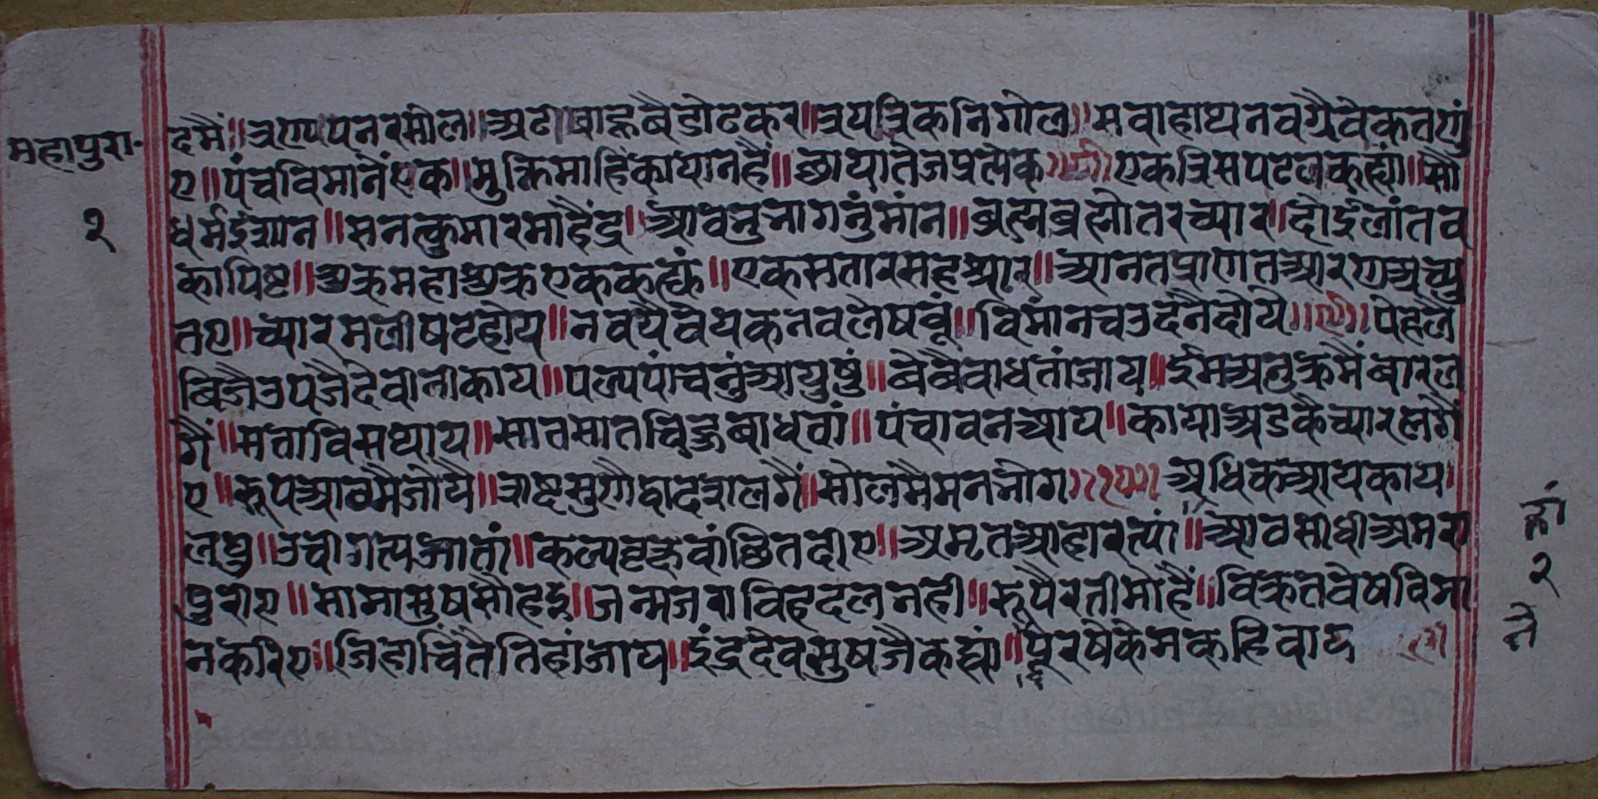 महापुरा॰
२
दमैं॥त्रएयपनरसोल॥अढीषाह्नबैडोढकर॥त्रयत्रिकनिगोल॥सवाहाथनवग्रैवेकतएं
ए॥पंचविमानैंएक॥मुक्तिमाहिकायानहैं॥छायातेजप्रत्येक॥एकत्रिसपटलकह्यां॥सौ
धर्मईशान॥सनत्कुमारमाहैंद्र॥आवनुभागनुंमांन॥ब्रह्मब्रह्मोतरच्यार॥दोईलांतव
कापिष्ट॥शुक्रमहाशुक्रएककह्यं॥एकसतारसहश्रार॥आनतप्राणतआरणअच्यु
तए॥च्यारमलीषटहोय॥नवग्रैवेयकनवलेषवूं॥विमांनचउदनैदोय॥पेहेलै
बिजैउपजैदेवीनीकाय॥पल्यपांचनुंआयुषुं॥बेबैवाधतांजाय॥ईमअनुक्रमैंबारल
गैं॥सताविसथाय॥सातसातचिहुबाधवां॥पंचावनआय॥कायाअडकैच्यारलगैं
ए॥रूपआवमैजोय॥त्राष्टसुरगैद्वादशलगैं॥सोलमैमनभोग॥अधिकआयकाय
लघु॥उचीगत्यजातां॥कल्पवृक्षवांछितदीए॥अमृतआहारत्यां॥आवसाधीअमरा
पुरीए॥सामासुषसौहइं॥जन्मजराविहदलनही॥रूपैरतीमोहैं॥विक्रतवेषविमा
नकरिए॥जिहाचिंतैतिहांजाय॥इंद्रदेवसुषजैकह्यां॥पूरषैकेमकहिवाय
२
नै